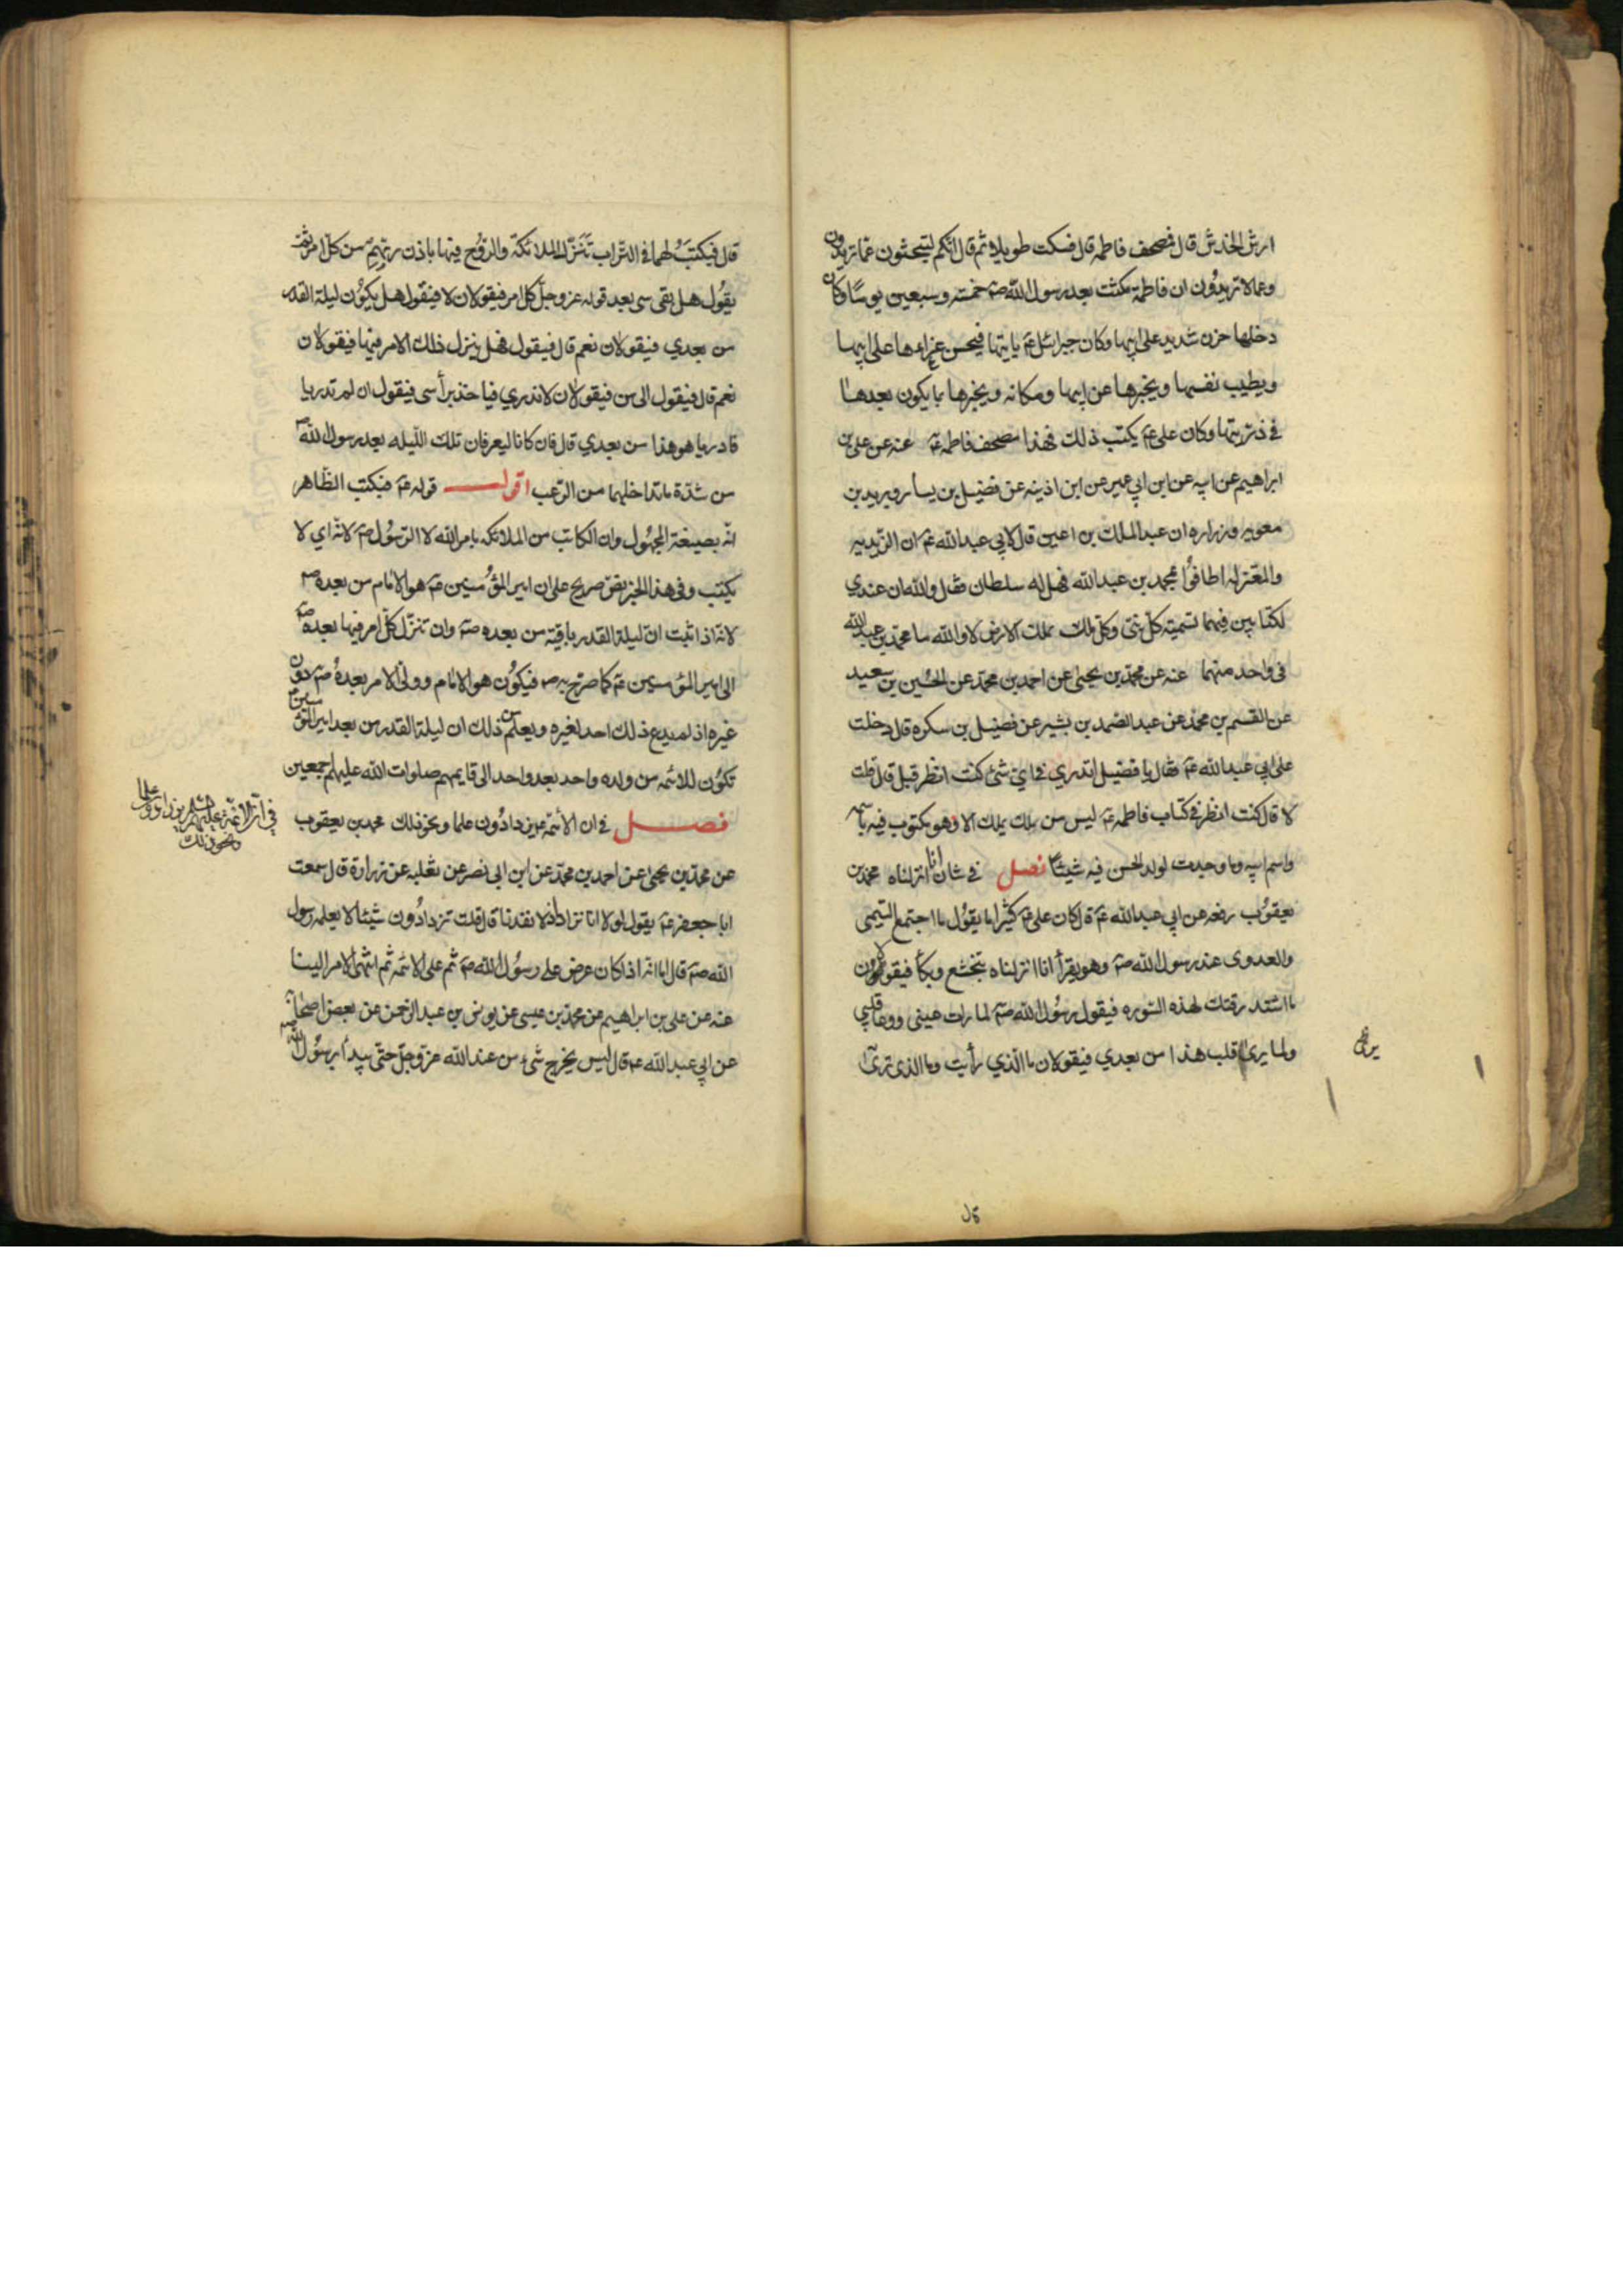 ارش الخدش قال فمصحف فاطمه قال فسكت طويلا ثم قال انكم لتبحثون عما تريدون
وعما لا تريدون ان فاطمة مكثت بعد رسول الله صم خمسة وسبعين يوما وكان
دخلها حزن شديد على ابيها وكان جبرائيل عم ياتيها فيحسن عزاءها على ابيها
ويطيب نفسها ويخبرها عن ابيها ومكانه ويخبرها بما يكون بعدها
في ذريتها وكان علي عم يكتب ذلك فهذا مصحف فاطمه عم عنه عن علي بن
ابراهيم عن ابيه عن ابن ابي عمير عن ابن اذينه عن فضيل بن يسار وبريد بن
معويه وزراره ان عبد الملك بن اعين قال لابي عبد الله عم ان الزيديه
والمعتزله اطافوا بمحمد بن عبد الله فهل له سلطان فقال والله ان عندي
لكتابين فيهما تسمية كل نبي وكل ملك يملك الارض لا والله ما محمد بن عبد الله
في واحد منهما عنه عن محمد بن يحيى عن احمد بن محمد عن الحسين بن سعيد
عن القسم بن محمد عن عبد الصمد بن بشير عن فضيل بن سكره قال دخلت
على ابي عبد الله عم فقال يا فضيل اتدري في اي شئ كنت انظر قبل قال قلت
لا قال كنت انظر في كتاب فاطمه عم ليس من ملك يملك الا وهو مكتوب فيه باسمه
واسم ابيه وما وجدت لولد الحسن فيه شيئا فصل في شان انا انزلناه محمد بن
يعقوب رفعه عن ابي عبد الله عم قال كان علي عم كثيرا ما يقول ما اجتمع التيمي
والعدوى عند رسول الله صم وهو يقرأ انا انزلناه بتخشع وبكأ فيقولون
ما اشتد رقتك لهذه السوره فيقول رسول الله صم لما رات عيني ووعا قلبي
ولما يرى قلب هذا من بعدي فيقولان ما الذي رأيت وما الذى ترى
يرى
قال فيكتب لهما في التراب تنزل الملائكة والروح فيها باذن ربهم من كل امر ثم
يقول هل بقى شى بعد قوله عز وجل كل امر فيقولان لا فيقول هل يكون ليلة القدر
من بعدي فيقولان نعم قال فيقول فهل ينزل ذلك الامر فيها فيقولان
نعم قال فيقول الى من فيقولان لا ندري فياخذ برأسى فيقول ان لم تدريا
فادريا هو هذا من بعدي قال فان كانا ليعرفان تلك الليله بعد رسول الله صم
من شدة ما تداخلهما من الرعب اقول قوله عم فيكتب الظاهر
انه بصيغة المجهول وان الكاتب من الملائكه بامر الله لا الرسول صم لانه اي لا
يكتب وفي هذا الخبر نص صريح على ان امير المؤمنين عم هو الامام من بعده صم
لانه اذا ثبت ان ليلة القدر باقية من بعده صم وان تنزل كل امر فيها بعده صم
الى امير المؤمنين عم كما صرح به صم فيكون هو الامام وولى الامر بعده صم دون
غيره اذ لم يدع ذلك احد لغيره ويعلم من ذلك ان ليلة القدر من بعد امير المؤمنين
تكون للائمه من ولده واحد بعد واحد الى قايمهم صلوات الله عليهم اجمعين
فصل في ان الائمة عم يزدادون علما ونحو ذلك محمد بن يعقوب
في ان الائمة عليهم السلم يزدادون علما
ونحو ذلك
عن محمد بن يحيى عن احمد بن محمد عن ابن ابى نصر عن ثعلبه عن زرارة قال سمعت
ابا جعفر عم يقول لولا انا نزداد لانفدنا قال قلت تزدادون شيئا لا يعلمه رسول
الله صم قال اما انه اذا كان عرض على رسول الله صم ثم على الائمه ثم انتهى الامر الينا
عنه عن على بن ابراهيم عن محمد بن عيسى عن يونس بن عبد الرحمن عن بعض اصحابه
عن ابي عبد الله عم قال ليس يخرج شئ من عند الله عز وجل حتى يبدأ برسول الله صم
قال